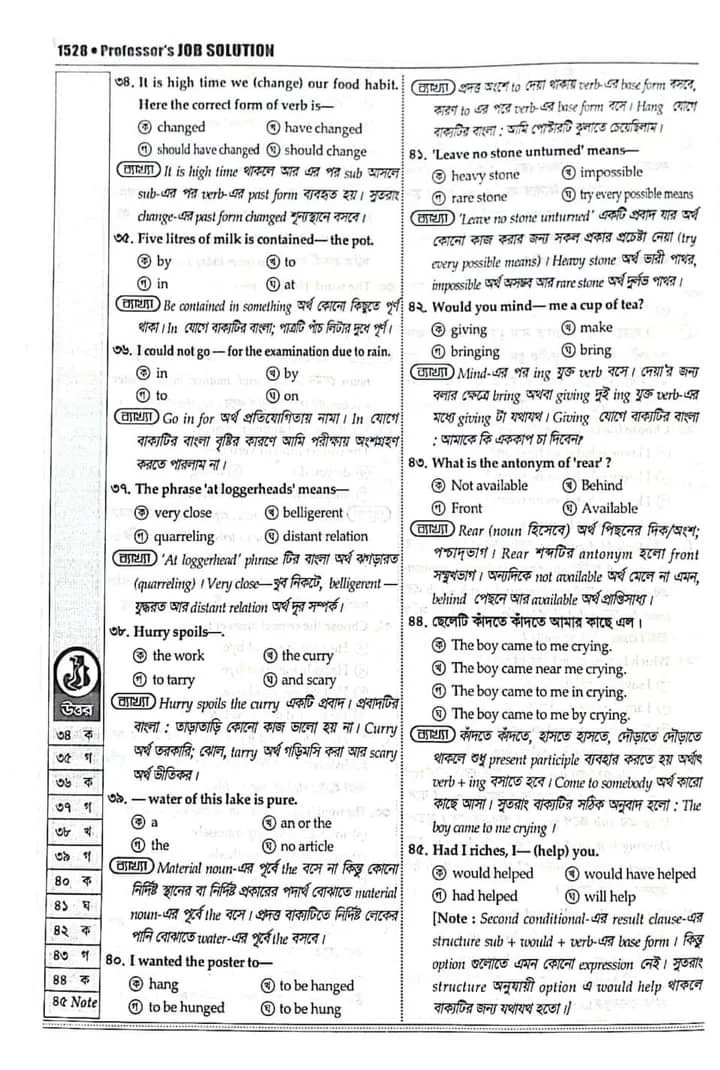 1528 • Professor's JOB SOLUTION
৩৪. It is high time we (change) our food habit.
Here the correct form of verb is—
ক changed খ have changed
গ should have changed ঘ should change
ব্যাখ্যা It is high time থাকলে আর এর পর sub আসলে
sub-এর পর verb-এর past form ব্যবহৃত হয়। সুতরাং
change-এর past form changed শূন্যস্থানে বসবে।
৩৫. Five litres of milk is contained— the pot.
ক by খ to
গ in ঘ at
ব্যাখ্যা Be contained in something অর্থ কোনো কিছুতে পূর্ণ
থাকা। In যোগে বাক্যটির বাংলা; পাত্রটি পাঁচ লিটার দুধে পূর্ণ।
৩৬. I could not go — for the examination due to rain.
ক in খ by
গ to ঘ on
ব্যাখ্যা Go in for অর্থ প্রতিযোগিতায় নামা। In যোগে
বাক্যটির বাংলা বৃষ্টির কারণে আমি পরীক্ষায় অংশগ্রহণ
করতে পারলাম না।
৩৭. The phrase 'at loggerheads' means—
ক very close খ belligerent
গ quarreling ঘ distant relation
ব্যাখ্যা 'At loggerhead' phrase টির বাংলা অর্থ ঝগড়ারত
(quarreling) । Very close—খুব নিকটে, belligerent —
যুদ্ধরত আর distant relation অর্থ দূর সম্পর্ক।
৩৮. Hurry spoils—.
ক the work খ the curry
গ to tarry ঘ and scary
ব্যাখ্যা Hurry spoils the curry একটি প্রবাদ। প্রবাদটির
বাংলা : তাড়াতাড়ি কোনো কাজ ভালো হয় না। Curry
অর্থ তরকারি; ঝোল, tarry অর্থ গড়িমসি করা আর scary
অর্থ ভীতিকর।
৩৯. — water of this lake is pure.
ক a খ an or the
গ the ঘ no article
ব্যাখ্যা Material noun-এর পূর্বে the বসে না কিন্তু কোনো
নির্দিষ্ট স্থানের বা নির্দিষ্ট প্রকারের পদার্থ বোঝাতে material
noun-এর পূর্বে the বসে। প্রদত্ত বাক্যটিতে নির্দিষ্ট লেকের
পানি বোঝাতে water-এর পূর্বে the বসবে।
৪০. I wanted the poster to—
ক hang খ to be hanged
গ to be hunged ঘ to be hung
উত্তর
৩৪ ক
৩৫ গ
৩৬ ক
৩৭ গ
৩৮ খ
৩৯ গ
৪০ ক
৪১ ঘ
৪২ ক
৪৩ গ
৪৪ ক
৪৫ Note
ব্যাখ্যা প্রদত্ত অংশে to দেয়া থাকায় verb-এর base form বসবে,
কারণ to এর পরে verb-এর base form বসে। Hang যোগে
বাক্যটির বাংলা : আমি পোস্টারটি ঝুলাতে চেয়েছিলাম।
৪১. 'Leave no stone unturned' means—
ক heavy stone খ impossible
গ rare stone ঘ try every possible means
ব্যাখ্যা 'Leave no stone unturned' একটি প্রবাদ যার অর্থ
কোনো কাজ করার জন্য সকল প্রকার প্রচেষ্টা নেয়া (try
every possible means) । Heavy stone অর্থ ভারী পাথর,
impossible অর্থ অসম্ভব আর rare stone অর্থ দুর্লভ পাথর।
৪২. Would you mind— me a cup of tea?
ক giving খ make
গ bringing ঘ bring
ব্যাখ্যা Mind-এর পর ing যুক্ত verb বসে। দেয়া'র জন্য
বলার ক্ষেত্রে bring অথবা giving দুই ing যুক্ত verb-এর
মধ্যে giving টা যথাযথ। Giving যোগে বাক্যটির বাংলা
: আমাকে কি এককাপ চা দিবেন?
৪৩. What is the antonym of 'rear' ?
ক Not available খ Behind
গ Front ঘ Available
ব্যাখ্যা Rear (noun হিসেবে) অর্থ পিছনের দিক/অংশ;
পশ্চাদ্ভাগ। Rear শব্দটির antonym হলো front
সম্মুখভাগ। অন্যদিকে not available অর্থ মেলে না এমন,
behind পেছনে আর available অর্থ প্রাপ্তিসাধ্য।
৪৪. ছেলেটি কাঁদতে কাঁদতে আমার কাছে এল।
ক The boy came to me crying.
খ The boy came near me crying.
গ The boy came to me in crying.
ঘ The boy came to me by crying.
ব্যাখ্যা কাঁদতে কাঁদতে, হাসতে হাসতে, দৌড়াতে দৌড়াতে
থাকলে শুধু present participle ব্যবহার করতে হয় অর্থাৎ
verb + ing বসাতে হবে। Come to somebody অর্থ কারো
কাছে আসা। সুতরাং বাক্যটির সঠিক অনুবাদ হলো : The
boy came to me crying ।
৪৫. Had I riches, I— (help) you.
ক would helped খ would have helped
গ had helped ঘ will help
[Note : Second conditional-এর result clause-এর
structure sub + would + verb-এর base form । কিন্তু
option গুলোতে এমন কোনো expression নেই। সুতরাং
structure অনুযায়ী option এ would help থাকলে
বাক্যটির জন্য যথাযথ হতো।]